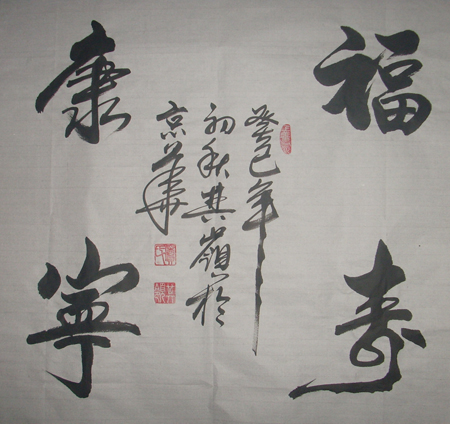 福寿
康寧
癸巳年
初秋其嶺於
京華